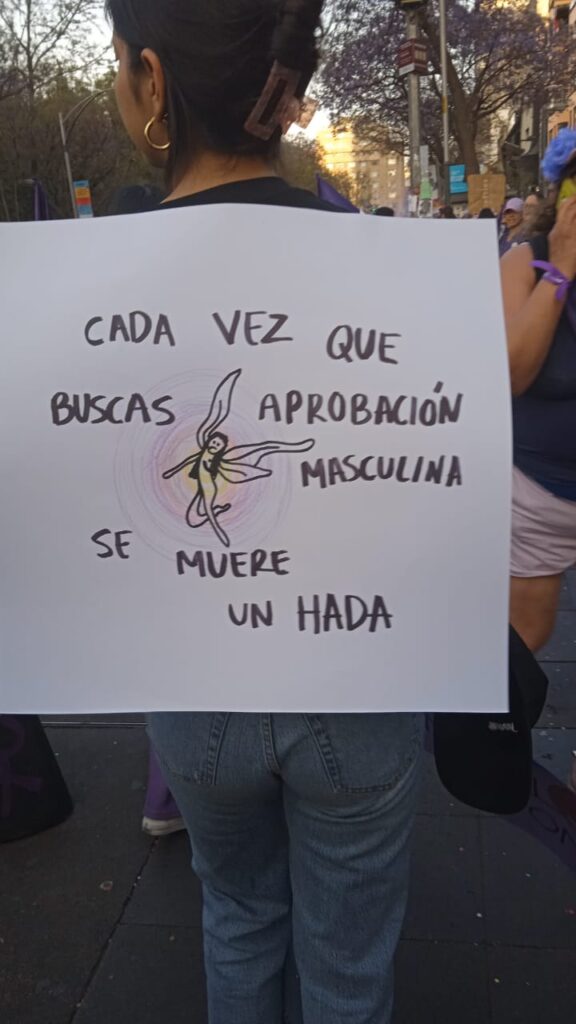 CADA VEZ QUE
BUSCAS APROBACIÓN
MASCULINA
SE MUERE
UN HADA